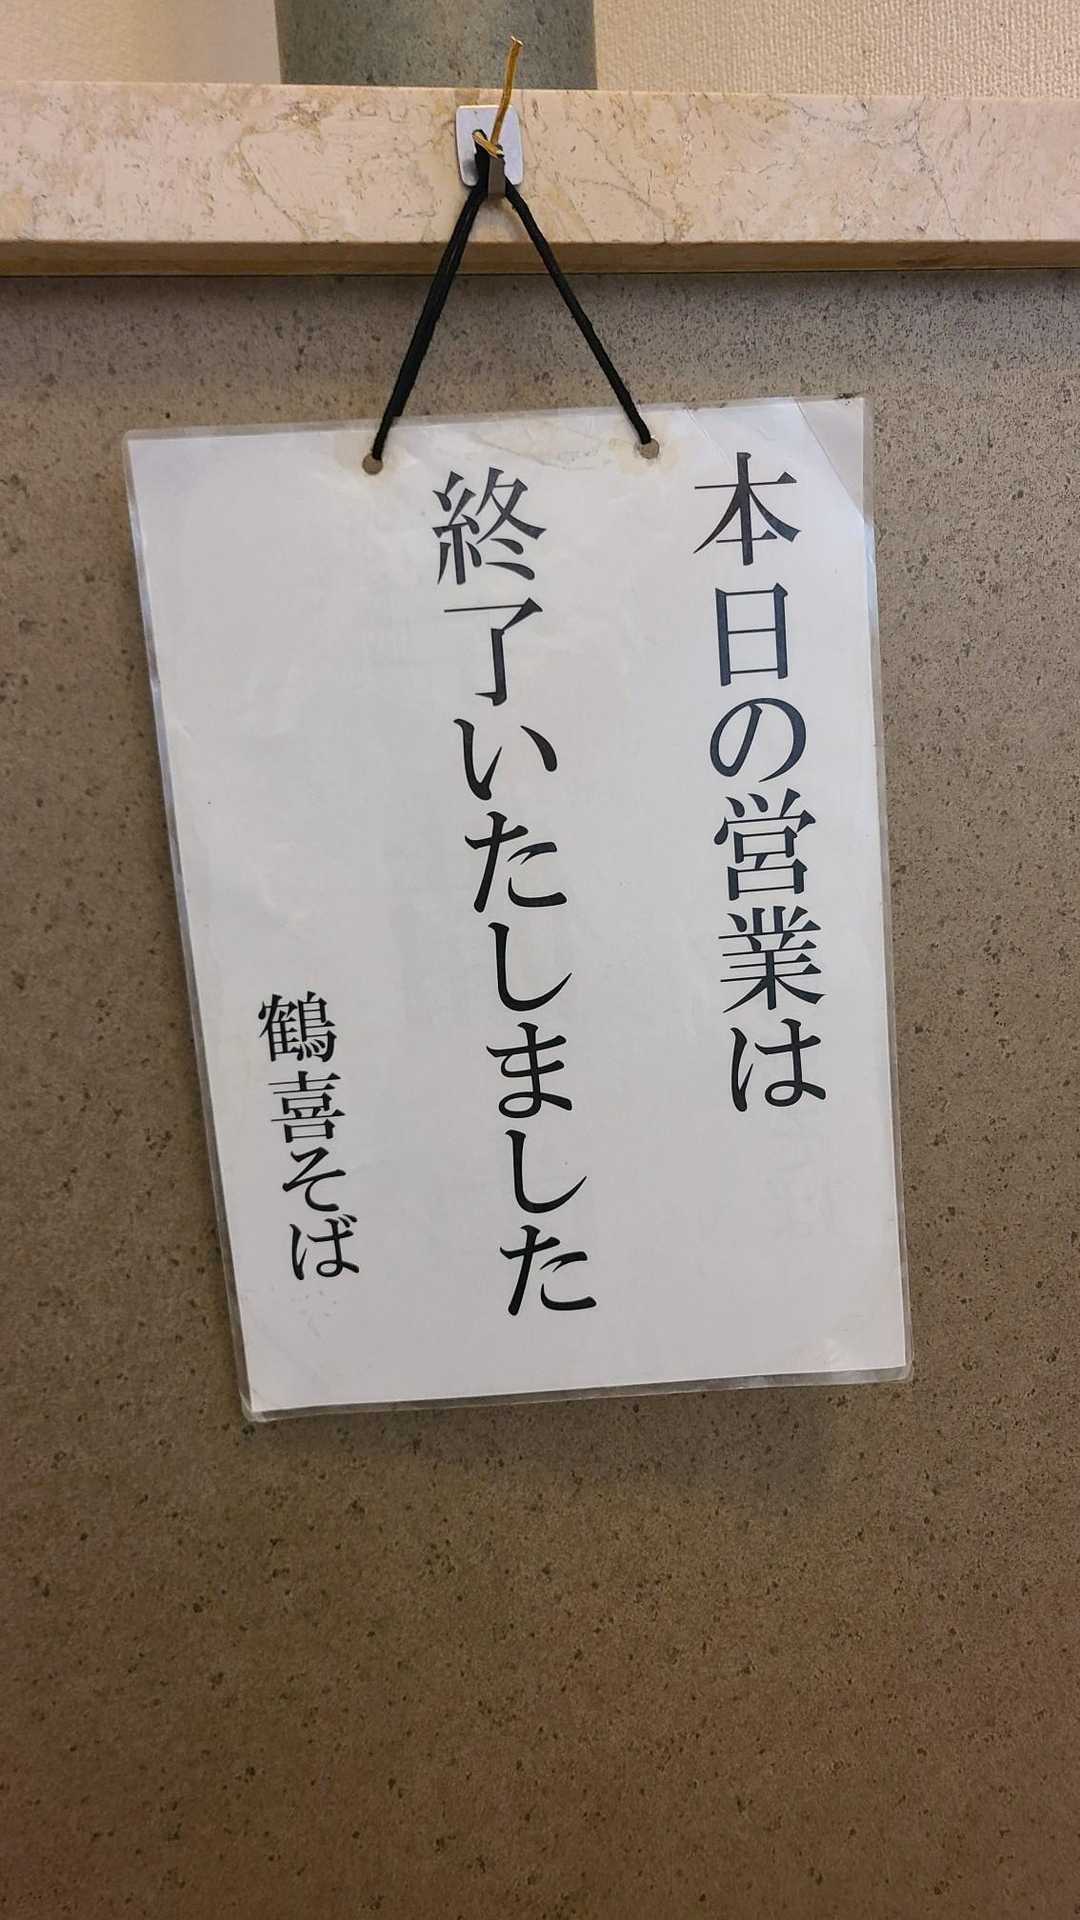 本日の営業は
終了いたしました
鶴喜そば